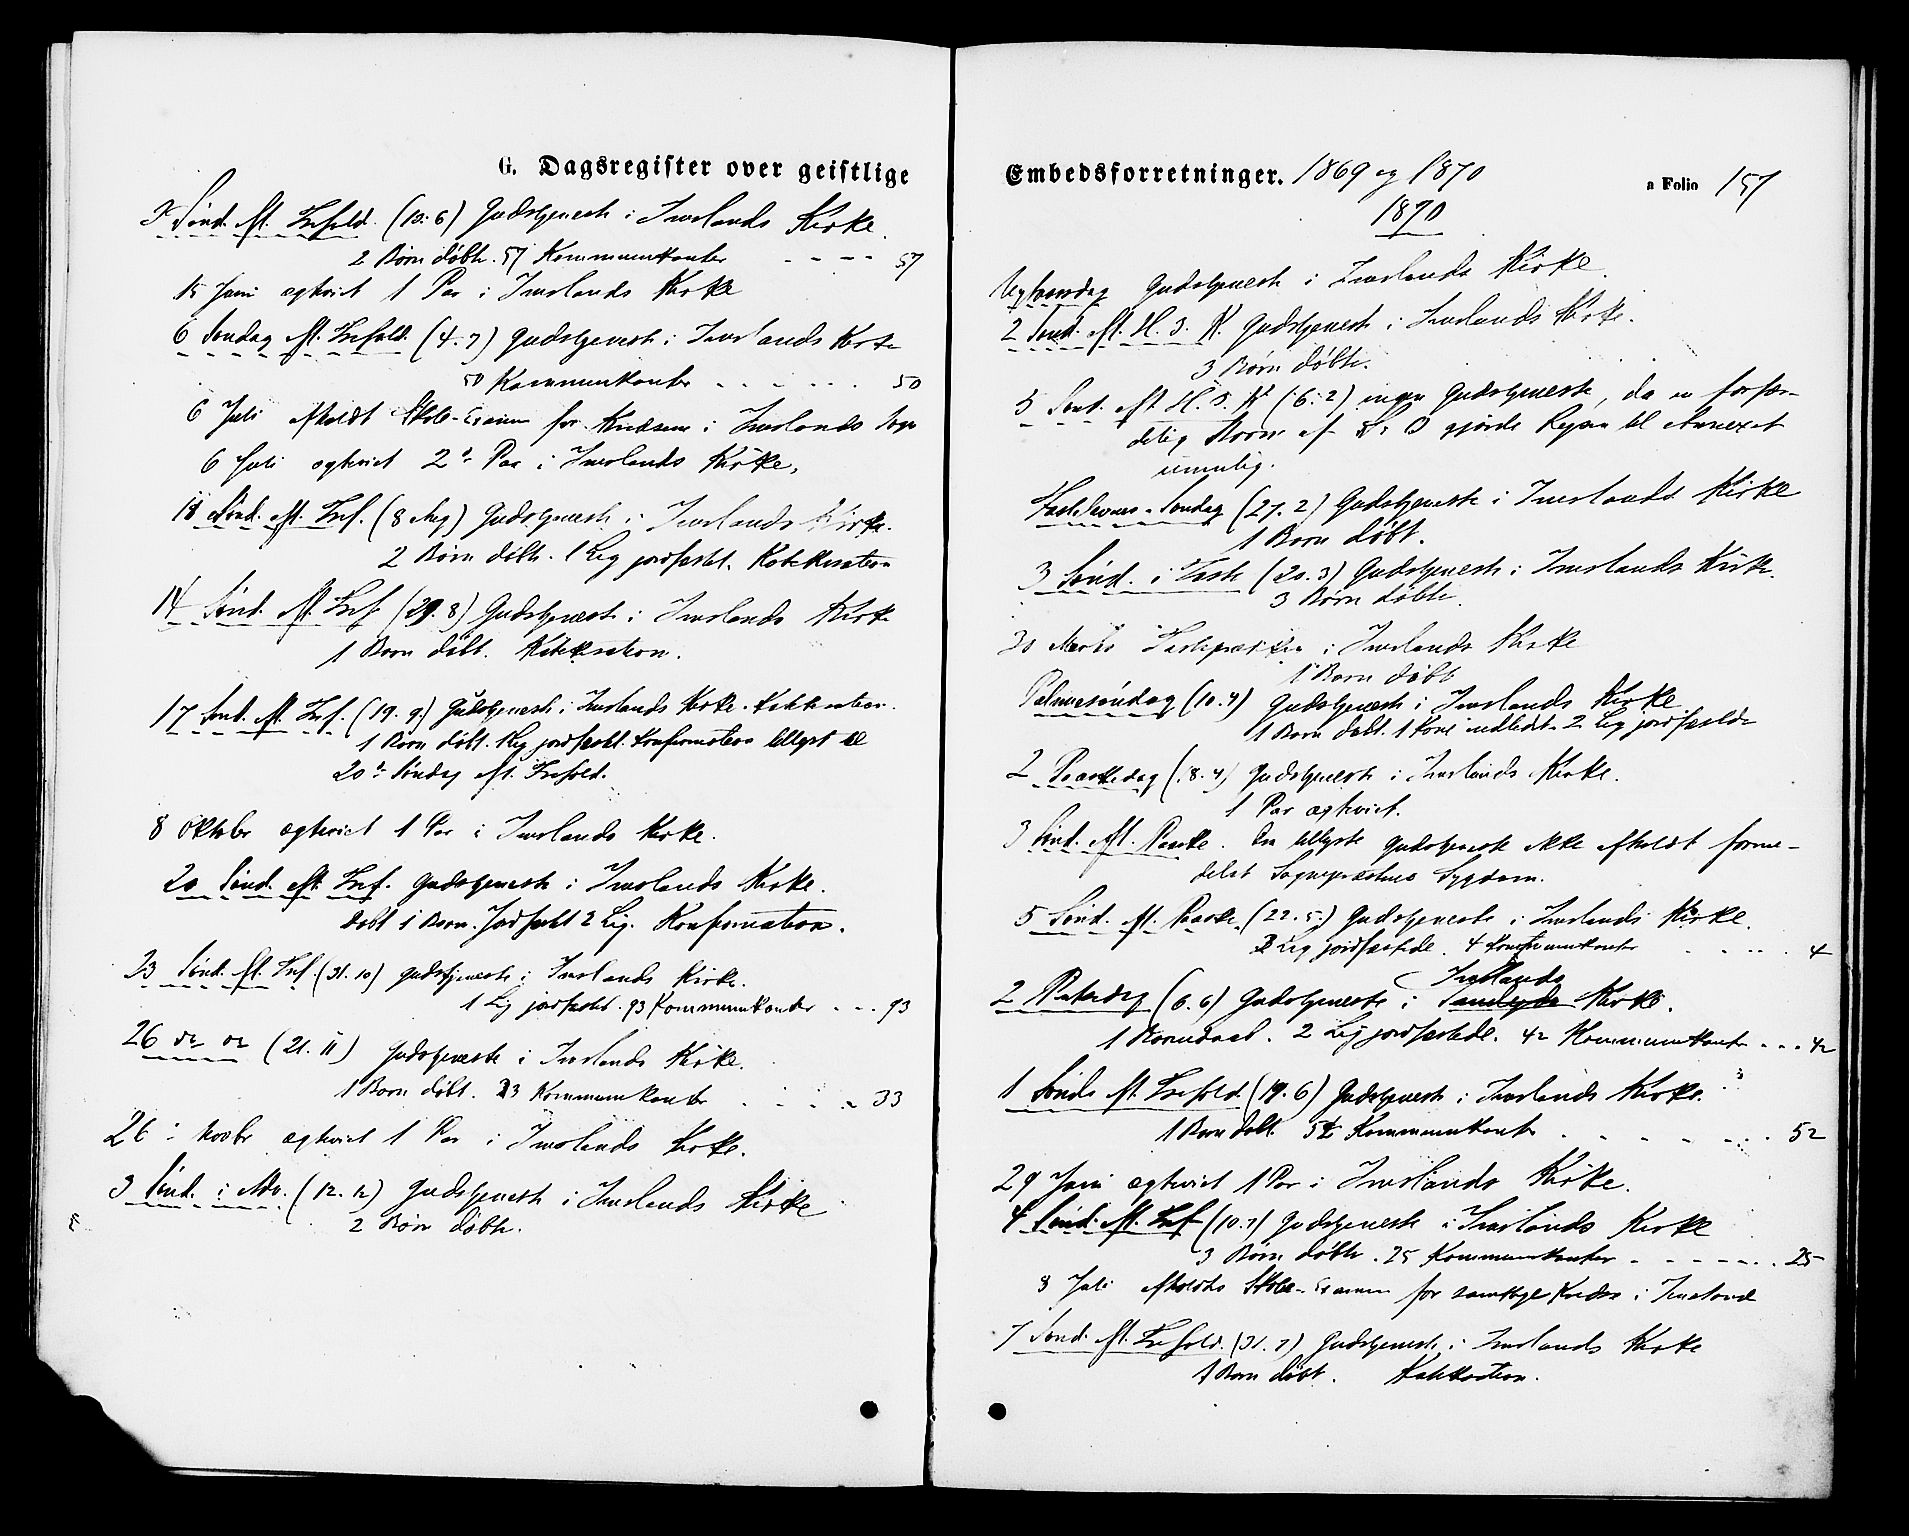 G. Dagsregister over geistlige
Sønd. eft. Trefold. (10.6) Gudstjeneste i Iverlands Kirke.
2 Børn døbte. 57 Kommunikanter - - - - 57
15 Juni egteviet 1 Par i Iverlands Kirke
6 Søndag eft. Trefold. (4.7) Gudstjeneste i Iverlands Kirke
50 Kommunikanter - - - - - - 50
6 Juli afholdt Skole-Examen for Kredsene i Iverlands Sogn
6 Juli egteviet 2de Par i Iverlands Kirke.
Sønd. eft. Tref. (8 Aug) Gudstjeneste i Iverlands Kirke.
2 Børn døbte. 1 Lig jordfæstet. Katekisation
14 Sønd. eft. Tref. (29.8) Gudstjeneste i Iverlands Kirke
1 Barn døbt. Katekisation.
17 Sønd. eft. Tref. (19.9.) Gudstjeneste i Iverlands Kirke. Katekisation.
1 Barn døbt. 1 Lig jordfæstet. Konfirmations tillyst til
20de Søndag eft. Trefold.
8 Oktober egteviet 1 Par i Iverlands Kirke.
20 Sønd. eft. Tref. Gudstjeneste i Iverlands Kirke.
Døbt 1 Barn. Jordfæstet 2 Lig. Konfirmation.
23 Sønd. eft. Tref. (31.10) Gudstjeneste i Iverlands Kirke.
1 Lig jordfæstet. 93 Kommunikanter - - - 93
26 do do (21.11) Gudstjeneste i Iverlands Kirke.
1 Barn døbt. 33 Kommunikanter - - - - 33
26de Novbr egteviet 1 Par i Iverlands Kirke.
3 Sønd. i Adv. (12.12) Gudstjeneste i Iverlands Kirke
2 Børn døbte.
Embedsforretninger. 1869 og 1870
a Folio 157
1870
Nytaarsdag Gudstjeneste i Iverlands Kirke.
2 Sønd. eft. H. 3. K. Gudstjeneste i Iverlands Kirke.
3 Børn døbte.
5 Sønd. eft H. 3. K (6.2) ingen Gudstjeneste, da en forfær-
delig Storm af gjorde Rejsen til Annexet
umulig.
Fastelavns-Søndag (27.2) Gudstjeneste i Iverlands Kirke
1 Barn døbt.
3 Sønd. i Faste (20.3) Gudstjeneste i Iverlands Kirke.
3 Børn døbte.
30 Marts Fasteprædiken i Iverlands Kirke
1 Barn døbt
Palmesøndag (10.4) Gudstjeneste i Iverlands Kirke
1 Barn døbt. 1 Kone indledet. 2 Lig jordfæstede
2 Paaskedag (18.4) Gudstjeneste i Iverlands Kirke.
1 Par egteviet.
3 Sønd. eft. Paaske. Den tillyste Gudstjeneste ikke afholdt forme-
delst Sognepræstens Sygdom.
5 Sønd. eft. Paaske. (22.5.) Gudstjeneste i Iverlands Kirke.
2 Lig jordfæstede. 4 Kommunikanter - - - - 4
2 Pintsedag (6.6) Gudstjeneste i Iverlands Kirke.
1 Barnedaab. 2 Lig jordfæstede. 42 Kommunikanter - - - 42
1 Sønd. eft. Trefold. (19.6) Gudstjeneste i Iverlands Kirke.
1 Barn døbt. 52 Kommunikanter - - - - - - 52
29 Juni egteviet 1 Par i Iverlands Kirke.
4 Sønd. eft. Tref. (10.7) Gudstjeneste i Iverlands Kirke
3 Børn døbte. 25 Kommunikanter - - - - - - 25
8 Juli afholdtes Skole-Examen for samtlige Kredse i Iverland
7 Sønd. eft. Trefold. (31.7) Gudstjeneste i Iverlands Kirke
1 Barn døbt. Katekisation.